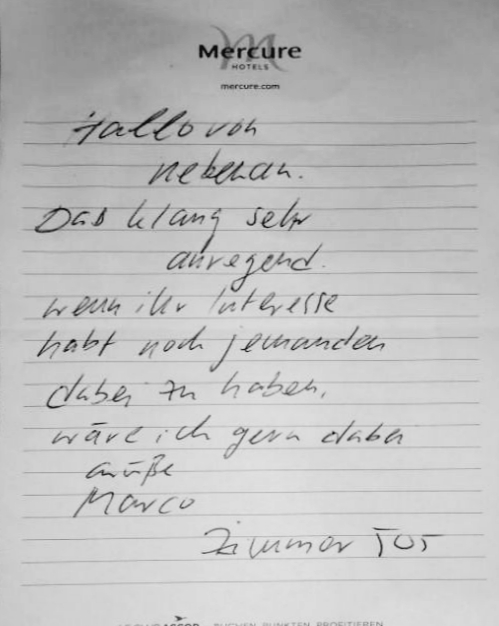 Mercure
HOTELS
mercure.com
Hallo von
nebenan.
Das klang sehr
anregend.
wenn ihr Interesse
habt noch jemanden
dabei zu haben,
wäre ich gern dabei
Grüße
Marco
Zimmer 505
ACCOR BUCHEN PUNKTEN PROFITIEREN